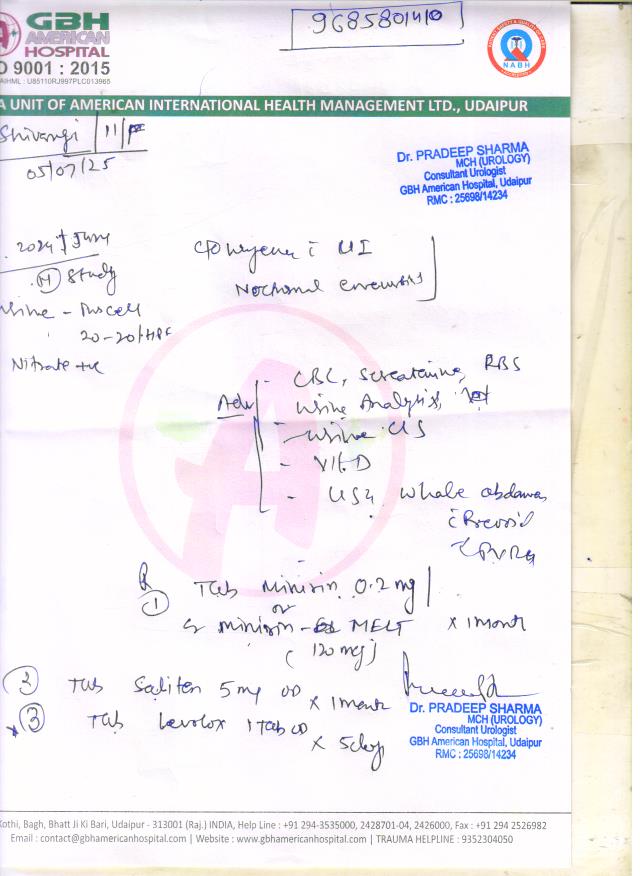 9685801410
GBH
AMERICAN
HOSPITAL
9001 : 2015
AIHML : U85110RJ997PLC013965
NABH
A UNIT OF AMERICAN INTERNATIONAL HEALTH MANAGEMENT LTD., UDAIPUR
Shivangi / 11/F
05/07/25
Dr. PRADEEP SHARMA
MCH (UROLOGY)
Consultant Urologist
GBH American Hospital, Udaipur
RMC : 25698/14234
2024 June
c/o c̄ UI
(N) Study
Nocturnal enuresis
Urine - Puscell
20-20/HPF
Nitrate +ve
Adv
- CBC, Screatinine, RBS
- Urine Analysis,
- Urine C/S
- Vit. D
- USG Whole abdomen
c̄ Prevoid
c̄ PVRU
R
1 Tab Minirin 0.2 mg
or
Minirin - MELT x 1 month
(120 mcg)
2 Tab Soliten 5 mg OD x 1 month
3 Tab Levolox 1 Tab OD x 5 day
Dr. PRADEEP SHARMA
MCH (UROLOGY)
Consultant Urologist
GBH American Hospital, Udaipur
RMC : 25698/14234
Kothi, Bagh, Bhatt Ji Ki Bari, Udaipur - 313001 (Raj.) INDIA, Help Line : +91 294-3535000, 2428701-04, 2426000, Fax : +91 294 2526982
Email : contact@gbhamericanhospital.com | Website : www.gbhamericanhospital.com | TRAUMA HELPLINE : 9352304050